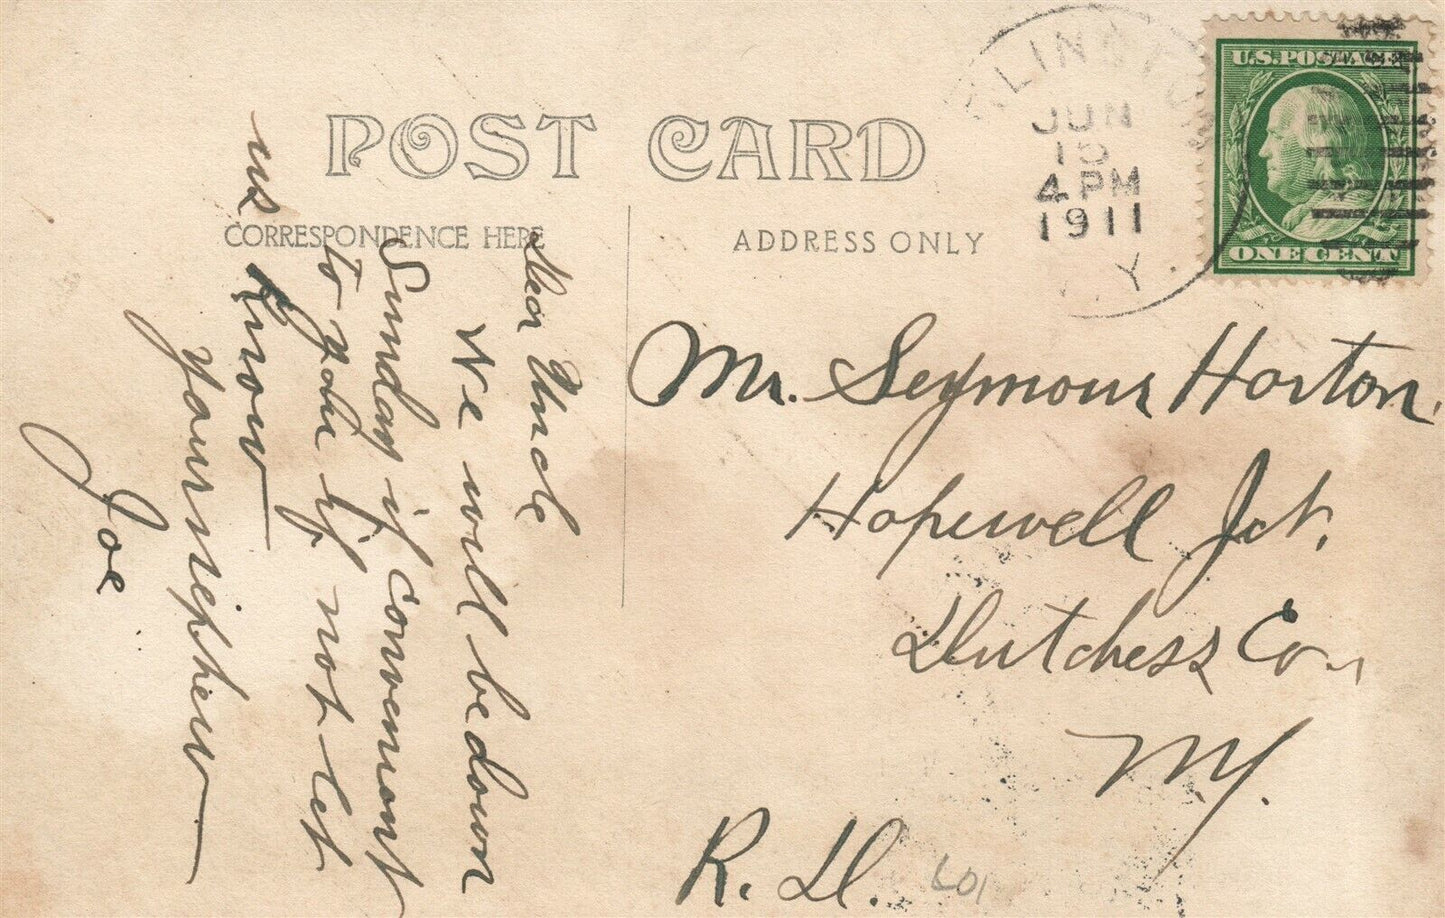 POST CARD
CORRESPONDENCE HERE
ADDRESS ONLY
JUN
4 PM
1911
Y.
U.S. POSTAGE
ONE CENT
Dear Uncle
We will be down
Sunday if convenient
to you if not let
us know
your nephew
Joe
Mr. Seymour Horton,
Hopewell Jct.
Dutchess Co.,
NY.
R. D.